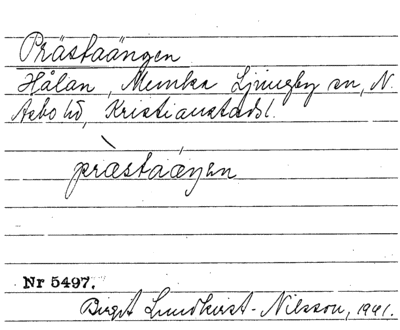 Prästaängen
Hålan, Munka Ljungby sn, N.
Åsbo hd, Kristianstadsl.
pràstaáŋen
Nr 5497.
Birgit Lundkvist-Nilsson, 1941.